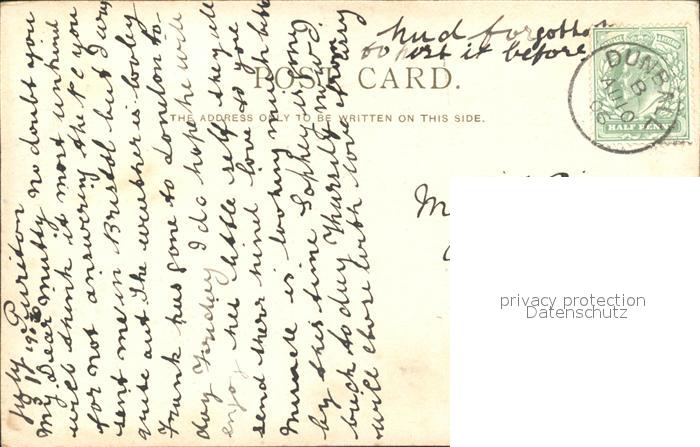 had forgotten
to post it before
POST CARD.
THE ADDRESS ONLY TO BE WRITTEN ON THIS SIDE.
DUNBALL
B
AU 10
06
HALF PENNY
M
privacy protection
Datenschutz
Puriton
July 31 1906
My Dear no doubt you
will think it most unkind
for not answering the P.C you
sent me in Bristol but I was
quite out The weather is looley
Frank has gone to London to-
day Friday I do hope he will
enjoy her little self they all
send there kind love to you
Muncle is looking much better
by this time Sophey is
back to day Thursdy now I
will close with love from